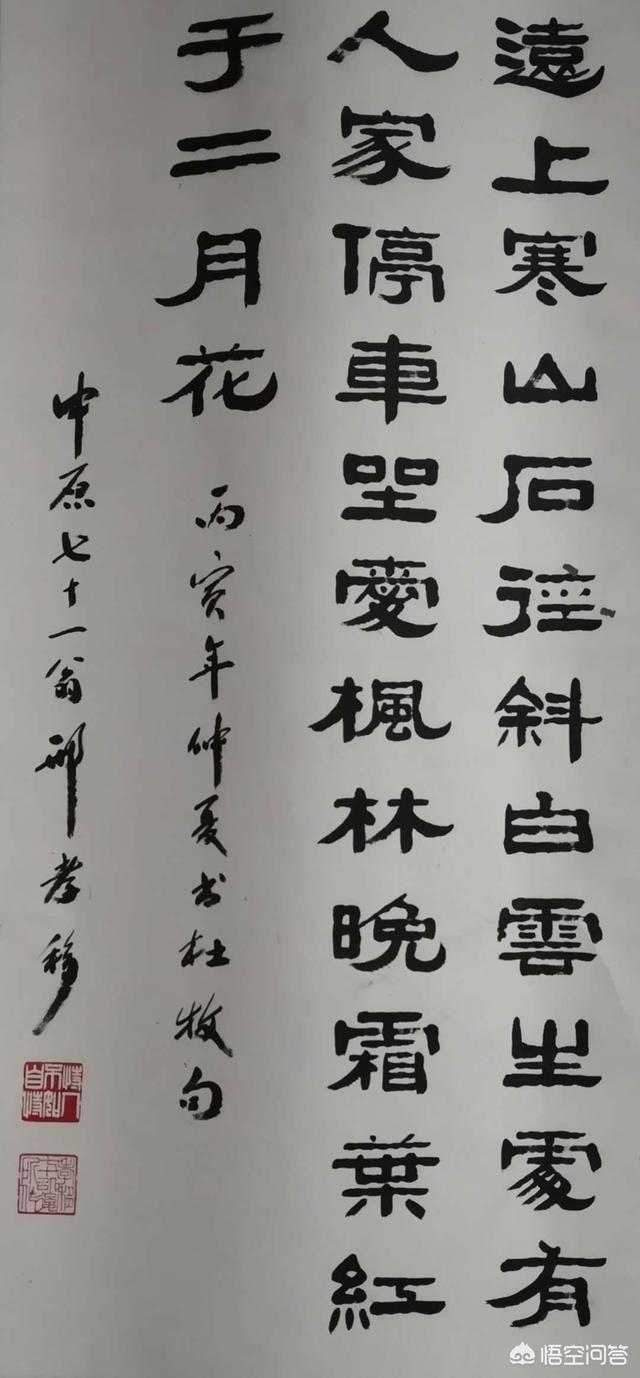 遠上寒山石徑斜白雲生處有
人家停車坐愛楓林晚霜葉紅
于二月花
丙寅年仲夏书杜牧句
中原七十一翁邢孝
悟空问答